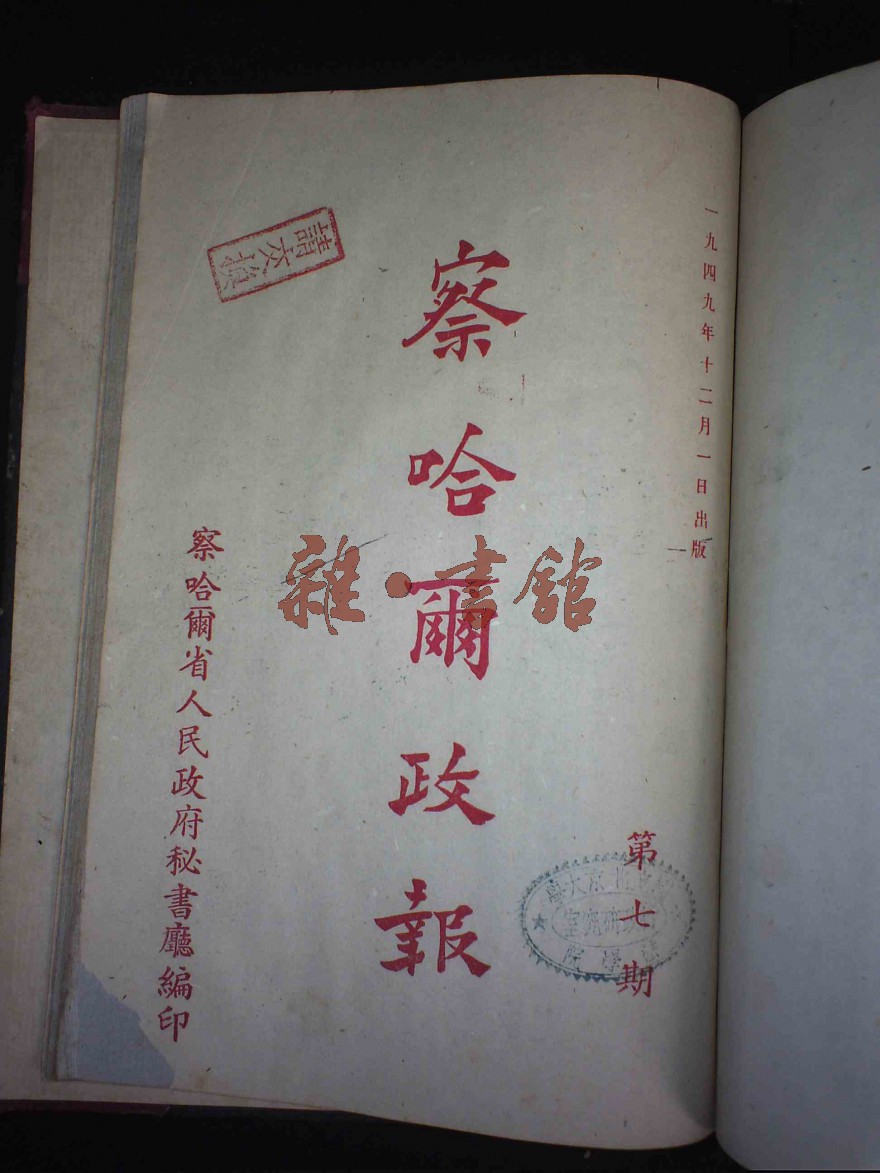 一九四九年十二月一日出版
第七期
察哈爾政報
察哈爾省人民政府秘書廳編印
請交換
雜·書館